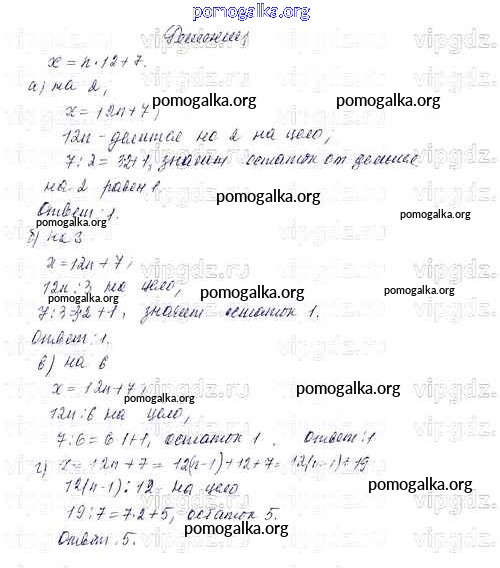 pomogalka.org
Решение,
x = n·12+7.
а) на 2,
x = 12n+7,
pomogalka.org
12n - делится на 2 на цело,
7:2 = 3·2+1, значит остаток от деления
pomogalka.org
на 2 равен 1.
pomogalka.org
Ответ: 1.
б) на 3
x = 12n+7,
12n:3 на цело,
pomogalka.org
7:3=3·2+1, значит остаток 1.
Ответ: 1.
в) на 6
x = 12n+7,
pomogalka.org
12n:6 на цело,
7:6=6·1+1, остаток 1. ответ: 1
г) x = 12n+7 = 12(n-1)+12+7 = 12(n-1)+19
12(n-1):12 на цело
pomogalka.org
19:7=7·2+5, остаток 5.
pomogalka.org
Ответ: 5.